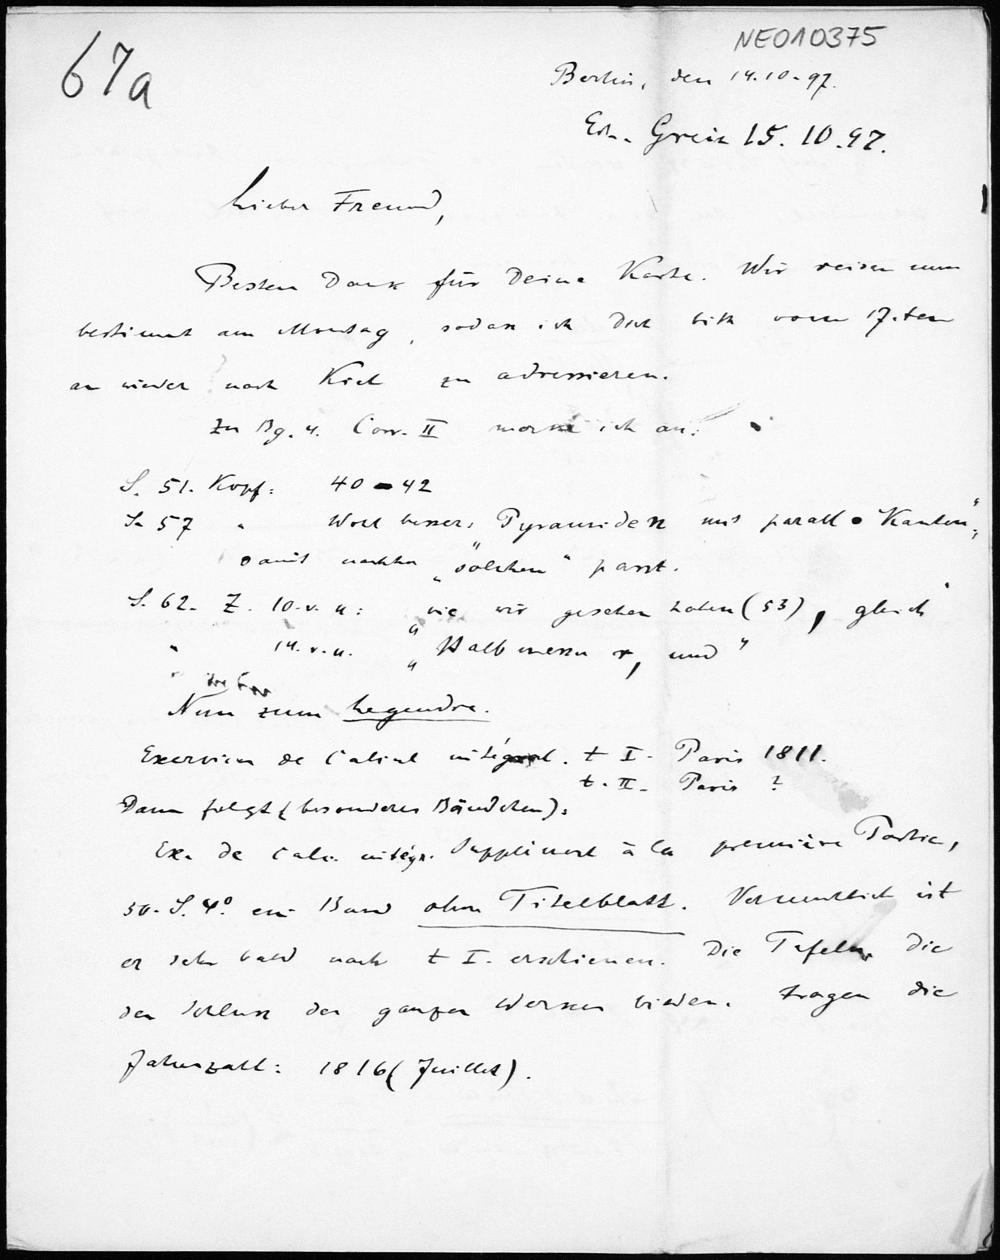 67a
NEO10375
Berlin, den 14.10.97.
Erh. Greiz 15.10.97.
Lieber Freund,
Besten Dank für Deine Karte. Wir reisen nun
bestimmt am Montag, sodass ich Dich bitte vom 17.ten
an wieder nach Kiel zu adressieren.
Zu Bg. 4. Corr. II merke ich an:
S. 51. Kopf: 40-42
S. 57 " Wohl besser: "Pyramiden mit parall. Kanten",
damit nachher "solchen" passt.
S. 62. Z. 10.v.u: "wie wir gesehen haben (53), gleich"
" 14.v.u. "Halbmesser r, und"
Nun zum Legendre.
Exercices de Calcul intégral. t I. Paris 1811.
t. II. Paris ?
Dann folgt (besonderes Bändchen):
Ex. de Calc. intégr. Supplément à la première Partie,
50. S. 4° ein Band ohne Titelblatt. Vermuthlich ist
er sehr bald nach t I. erschienen. Die Tafeln, die
den Schluss des ganzen Werkes bilden, tragen die
Jahrszahl: 1816 (Juillet).